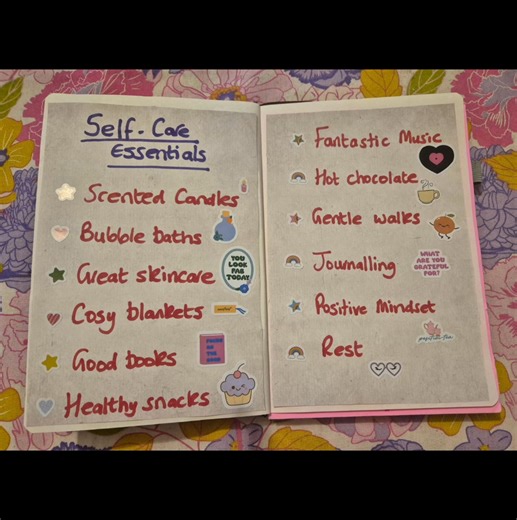 Self-Care
Essentials
Scented Candles
Bubble baths
YOU
LOOK
FAB
TODAY
Great skincare
Cosy blankets
Good books
FOCUS
ON
THE
GOOD
Healthy snacks
Fantastic Music
Hot chocolate
Gentle walks
Journalling
WHAT
ARE YOU
GRATEFUL
FOR?
Positive Mindset
Rest